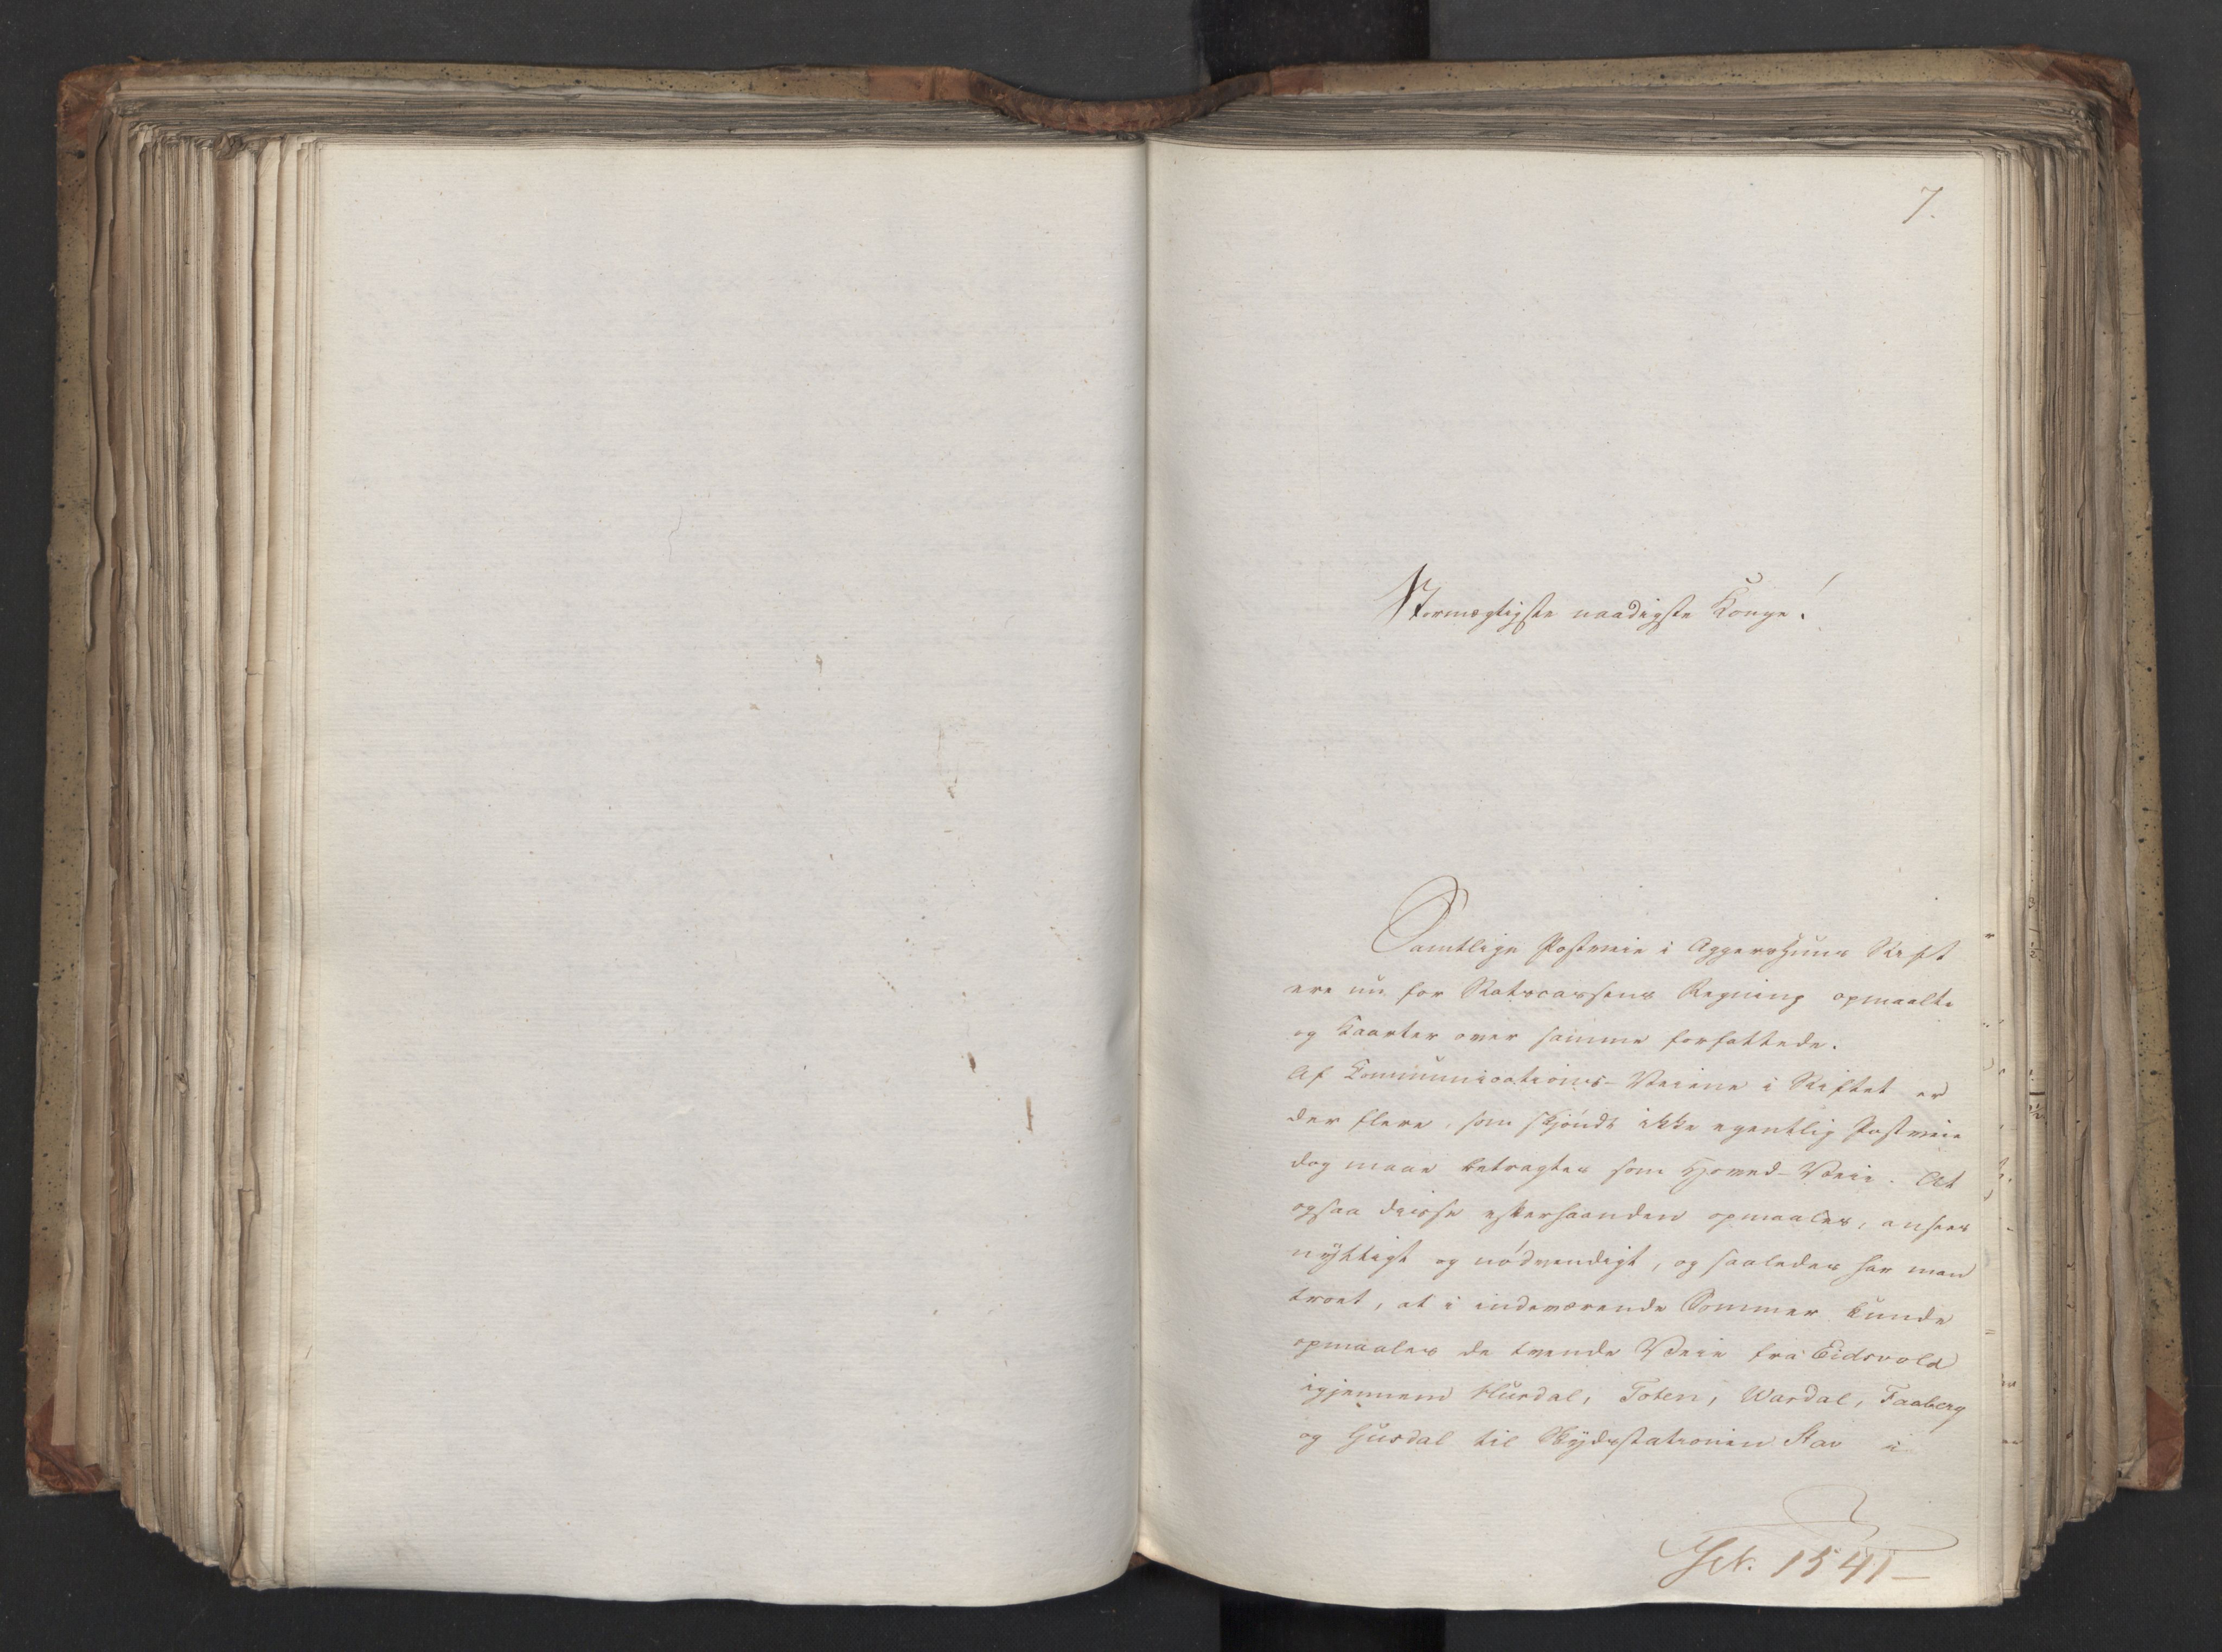 7.
Stormægtigste naadigste Konge!
Samtlige Postveie i Aggershuus Stift
ere nu for Statscassens Regning opmaalte
og Kaarter over samme forfattede.
Af Communications-Veiene i Stiftet er
der flere, som skjöndt ikke egentlig Postveie
dog maae betragtes som Hoved-Veie. At
ogsaa disse efterhaanden opmaales, ansees
nÿttigt og nödvendigt, og saaledes har man
troet, at i indeværende Sommer kunde
opmaales de tvende Veie fra Eidsvold
igjennem Hurdal, Toten, Wardal, Faaberg
og Gusdal til Skÿdsstationen Stav i
1541